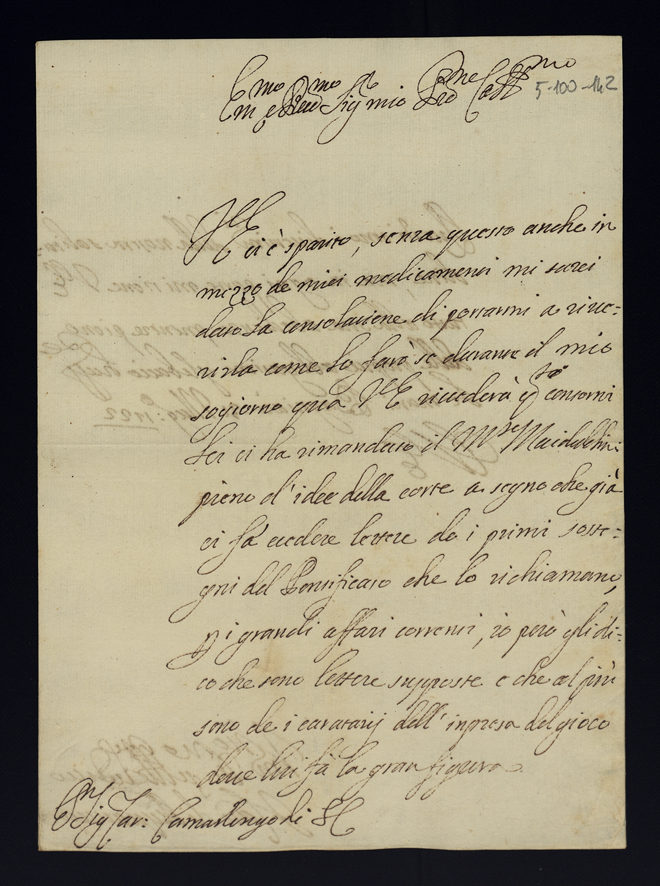 Emo e Rmo Sig mio Prone Colmo
5-100-142
VE ci è sparito, senza questo anche in
mezzo de miei medicamenti mi sarei
dato la consolatione di portarmi a rive:
rirla come lo farò se durante il mio
sogiorno qua VE riccederà in questi contorni
Lei ci ha rimandato il Mse
pieno d'idee della corte a segno che già
ci fà vedere lettere de i primi soste:
gni del Pontificato che lo richiamano,
p i grandi affari correnti, io però gli di:
co che sono lettere supposte e che al più
sono de i caratarij dell'inpresa del gioco
dove lui fà la gran figura.
Sig Car: Camarlengo di SC